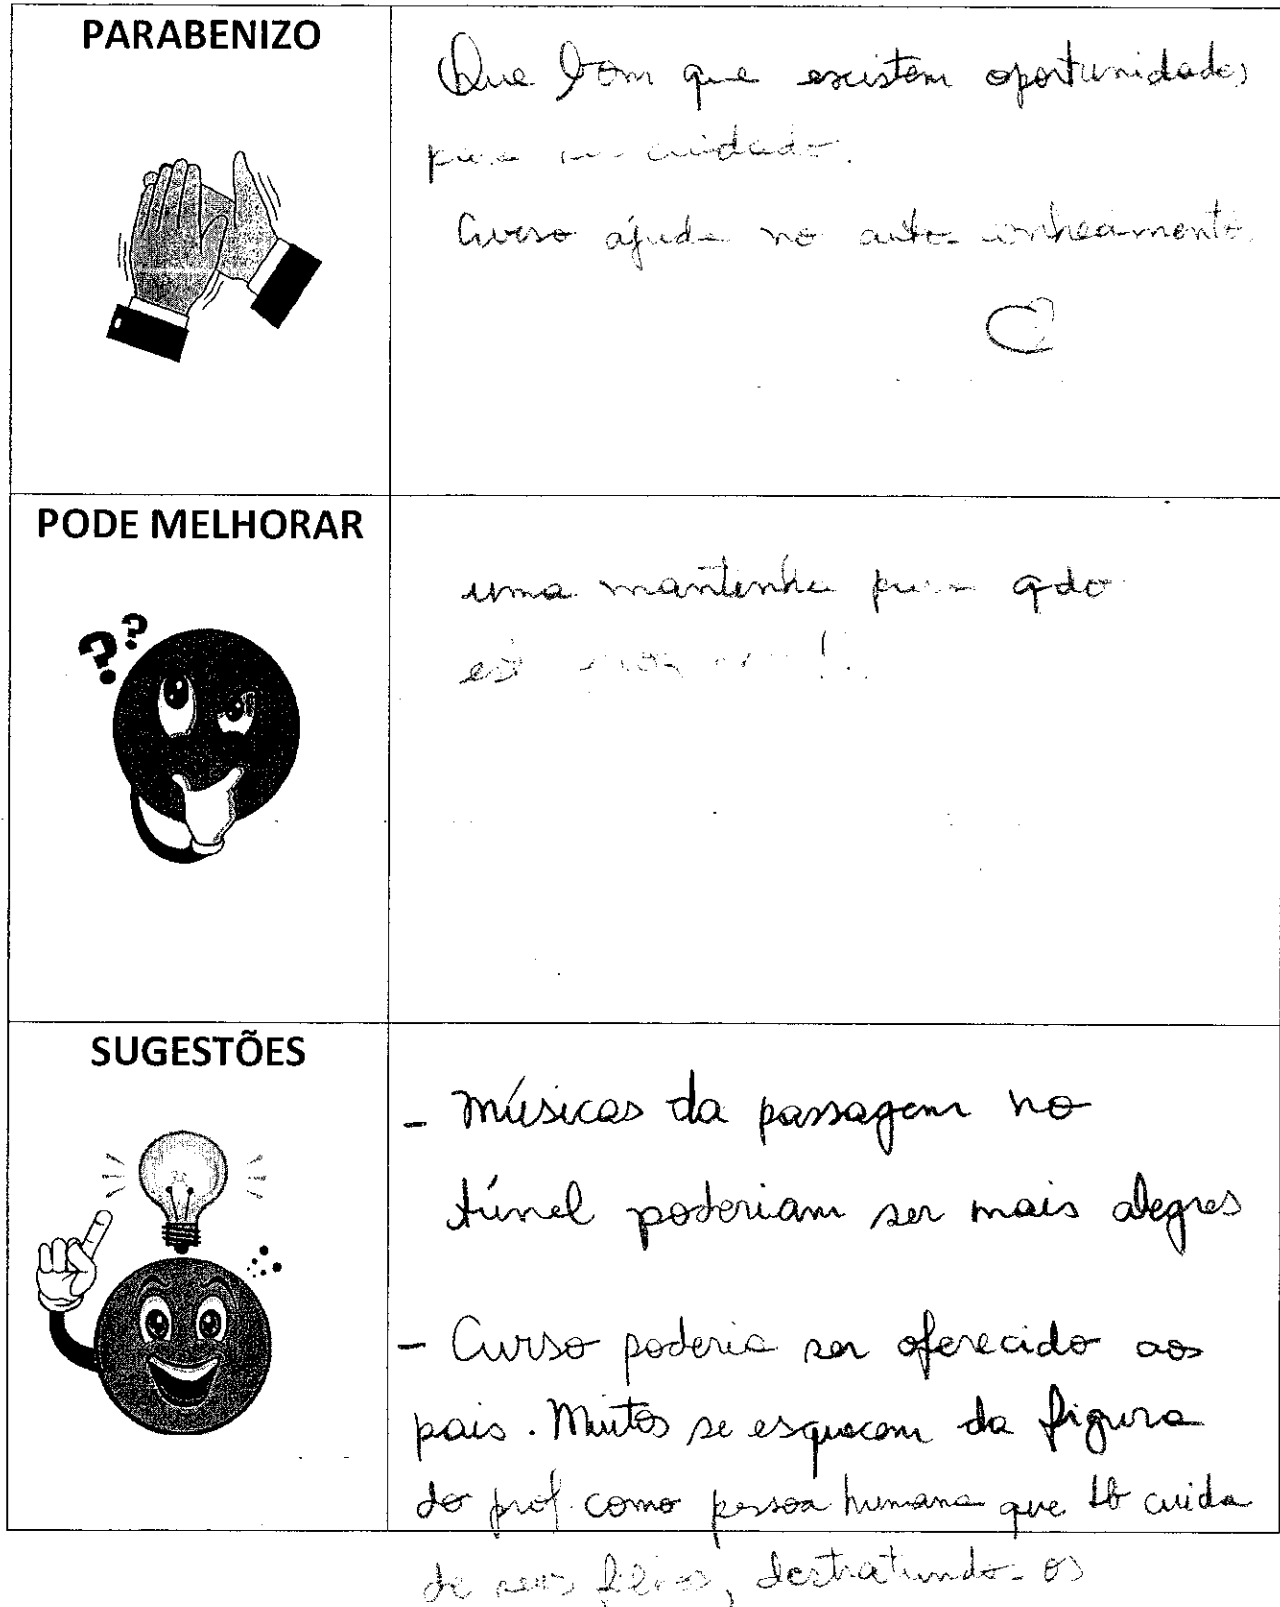 PARABENIZO
Que bom que existem oportunidades
para cuidado.
Curso ajuda no auto-conhecimento.
PODE MELHORAR
uma mantinha para qdo
SUGESTÕES
- Músicas da passagem no
túnel poderiam ser mais alegres
- Curso poderia ser oferecido aos
pais. Muitos se esquecem da figura
do prof. como pessoa humana que tb cuida
de seus filhos, destratando-os